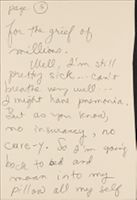 page 5
for the grief of
millions.
Well, I'm still
pretty sick... can't
breathe very well...
I might have pnemonia.
But as you know,
no insurancy, no
care-y. So I'm going
back to bed and
moan into my
pillow all my self